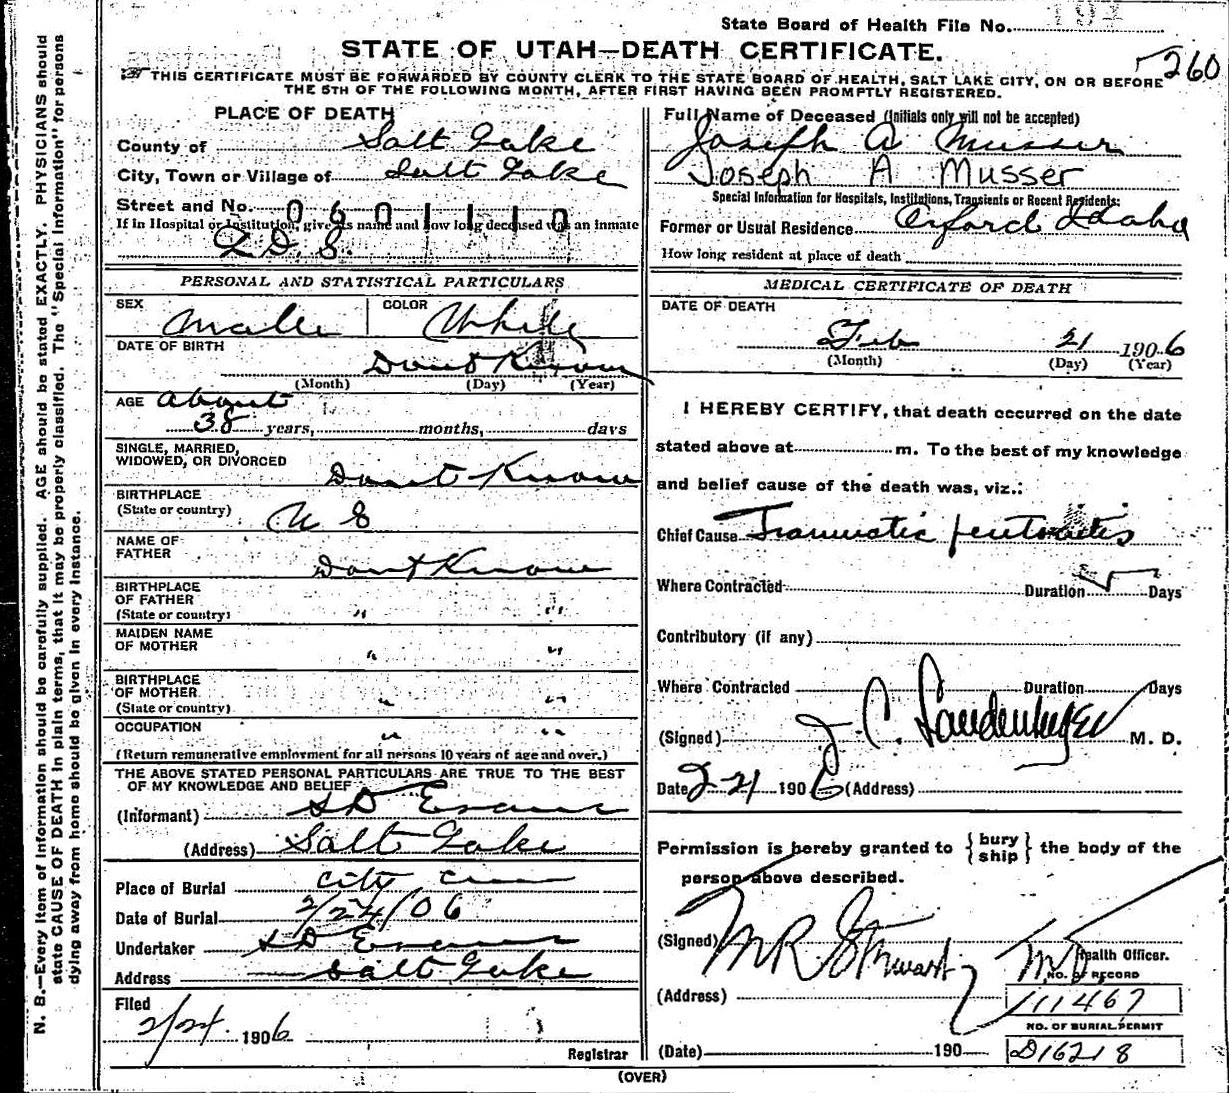 State Board of Health File No.
STATE OF UTAH—DEATH CERTIFICATE.
260
THIS CERTIFICATE MUST BE FORWARDED BY COUNTY CLERK TO THE STATE BOARD OF HEALTH, SALT LAKE CITY, ON OR BEFORE
THE 5TH OF THE FOLLOWING MONTH, AFTER FIRST HAVING BEEN PROMPTLY REGISTERED.
N. B.—Every item of information should be carefully supplied. AGE should be stated EXACTLY. PHYSICIANS should
state CAUSE OF DEATH in plain terms, that it may be properly classified. The "Special Information" for persons
dying away from home should be given in every instance.
PLACE OF DEATH
County of Salt Lake
City, Town or Village of Salt Lake
Street and No. 0601110
If in Hospital or Institution, give its name and how long deceased was an inmate
PERSONAL AND STATISTICAL PARTICULARS
SEX Male COLOR White
DATE OF BIRTH Dont Know
(Month) (Day) (Year)
AGE about
38 years, months, days
SINGLE, MARRIED,
WIDOWED, OR DIVORCED Dont Know
BIRTHPLACE
(State or country) U S
NAME OF
FATHER Dont Know
BIRTHPLACE
OF FATHER
(State or country) " "
MAIDEN NAME
OF MOTHER " "
BIRTHPLACE
OF MOTHER
(State or country) " "
OCCUPATION " "
(Return remunerative employment for all persons 10 years of age and over.)
THE ABOVE STATED PERSONAL PARTICULARS ARE TRUE TO THE BEST
OF MY KNOWLEDGE AND BELIEF
(Informant) S D Evans
(Address) Salt Lake
Place of Burial City Cem
Date of Burial 2/24/06
Undertaker S D Evans
Address Salt Lake
Filed
2/24. 1906
Registrar
Full Name of Deceased (Initials only will not be accepted)
Joseph A Musser
Joseph A Musser
Special Information for Hospitals, Institutions, Transients or Recent Residents:
Former or Usual Residence Oxford Idaho
How long resident at place of death
MEDICAL CERTIFICATE OF DEATH
DATE OF DEATH
Feb 21 1906
(Month) (Day) (Year)
I HEREBY CERTIFY, that death occurred on the date
stated above at m. To the best of my knowledge
and belief cause of the death was, viz.:
Chief Cause Traumatic peritonitis
Where Contracted Duration Days
Contributory (if any)
Where Contracted Duration Days
(Signed) J. C. Landenberger M. D.
Date 2-21 1906 (Address)
Permission is hereby granted to { bury ship } the body of the
person above described.
(Signed) M R Stewart M D Health Officer.
NO. OF RECORD
(Address) 111467
NO. OF BURIAL PERMIT
(Date) 190 D16218
(OVER)